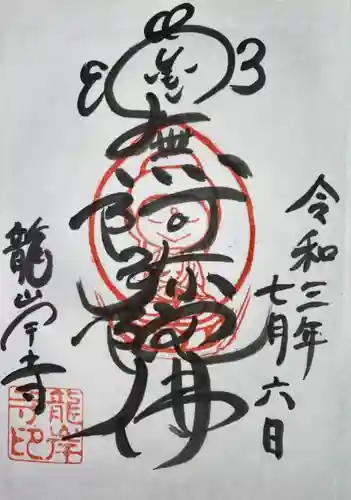 令和三年
七月六日
南無阿弥陀佛
龍岸寺
龍岸
寺印